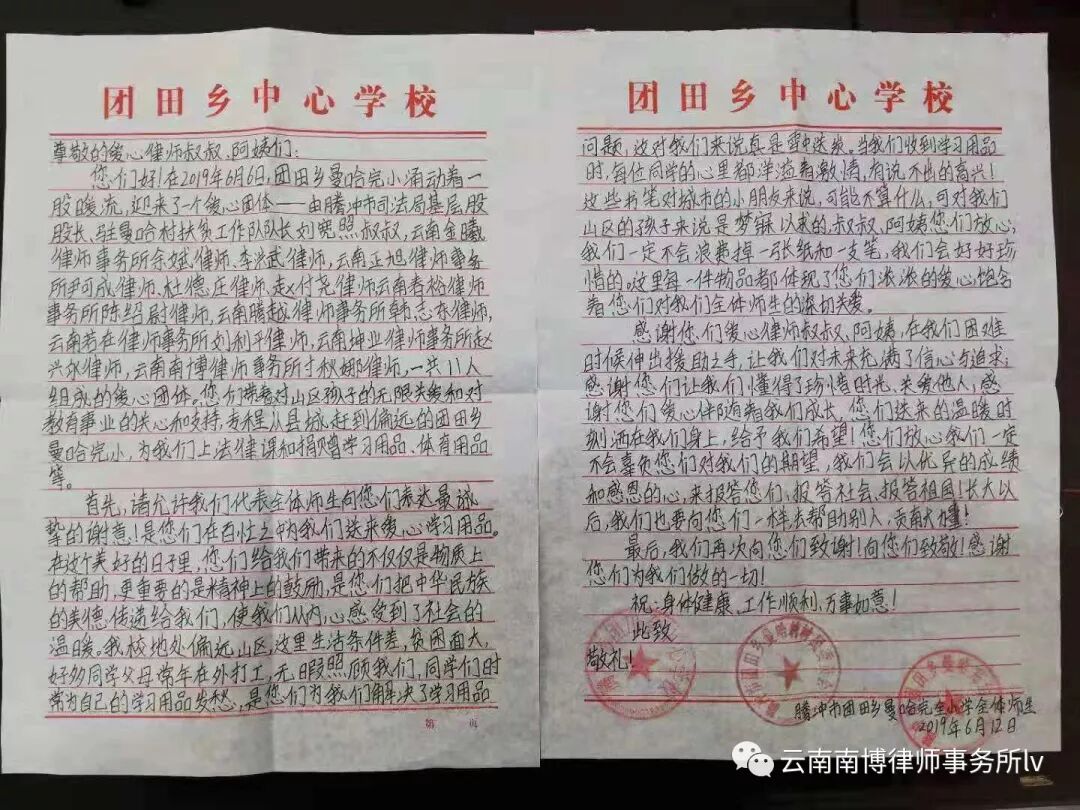 团田乡中心学校
尊敬的爱心律师叔叔、阿姨们：
您们好！在2019年6月6日，团田乡曼哈完小涌动着一
股暖流，迎来了一个爱心团体——由腾冲市司法局基层股
股长、驻曼哈村扶贫工作队队长刘宽照叔叔，云南金曦
律师事务所余斌律师、李兴武律师，云南正旭律师事务
所尹可成律师、杜德庄律师、赵付尧律师云南春裕律师
事务所陈绍尉律师，云南腾越律师事务所韩志东律师，
云南若在律师事务所刘利平律师，云南坤业律师事务所赵
兴尔律师，云南南博律师事务所寸秋娜律师，一共11人
组成的爱心团体。您们带着对山区孩子的无限关爱和对
教育事业的关心和支持，专程从县城赶到偏远的团田乡
曼哈完小，为我们上法律课和捐赠学习用品、体育用品
等。
首先，请允许我们代表全体师生向您们表达最诚
挚的谢意！是您们在百忙之中为我们送来爱心学习用品。
在这个美好的日子里，您们给我们带来的不仅仅是物质上
的帮助，更重要的是精神上的鼓励，是您们把中华民族
的美德传递给我们，使我们从内心感受到了社会的
温暖。我校地处偏远山区，这里生活条件差，贫困面大，
好多同学父母常年在外打工，无暇照顾我们，同学们时
常为自己的学习用品发愁，是您们为我们解决了学习用品
第 页
团田乡中心学校
问题，这对我们来说真是雪中送炭。当我们收到学习用品
时，每位同学的心里都洋溢着激情，有说不出的高兴！
这些书笔对城市的小朋友来说，可能不算什么，可对我们
山区的孩子来说是梦寐以求的，叔叔、阿姨您们放心，
我们一定不会浪费掉一张纸和一支笔，我们会好好珍
惜的。这里每一件物品都体现了您们浓浓的爱心，饱含
着您们对我们全体师生的深切关爱。
感谢您们爱心律师叔叔、阿姨，在我们困难
时候伸出援助之手，让我们对未来充满了信心与追求；
感谢您们让我们懂得了珍惜时光，关爱他人；感
谢您们爱心伴随着我们成长。您们送来的温暖时
刻洒在我们身上，给予我们希望！您们放心我们一定
不会辜负您们对我们的期望，我们会以优异的成绩
和感恩的心，来报答您们，报答社会，报答祖国！长大以
后，我们也要向您们一样去帮助别人，贡献力量！
最后，我们再次向您们致谢！向您们致敬！感谢
您们为我们做的一切！
祝：身体健康、工作顺利、万事如意！
此致
敬礼！
腾冲市团田乡曼哈完全小学全体师生
2019年6月12日
云南南博律师事务所lv